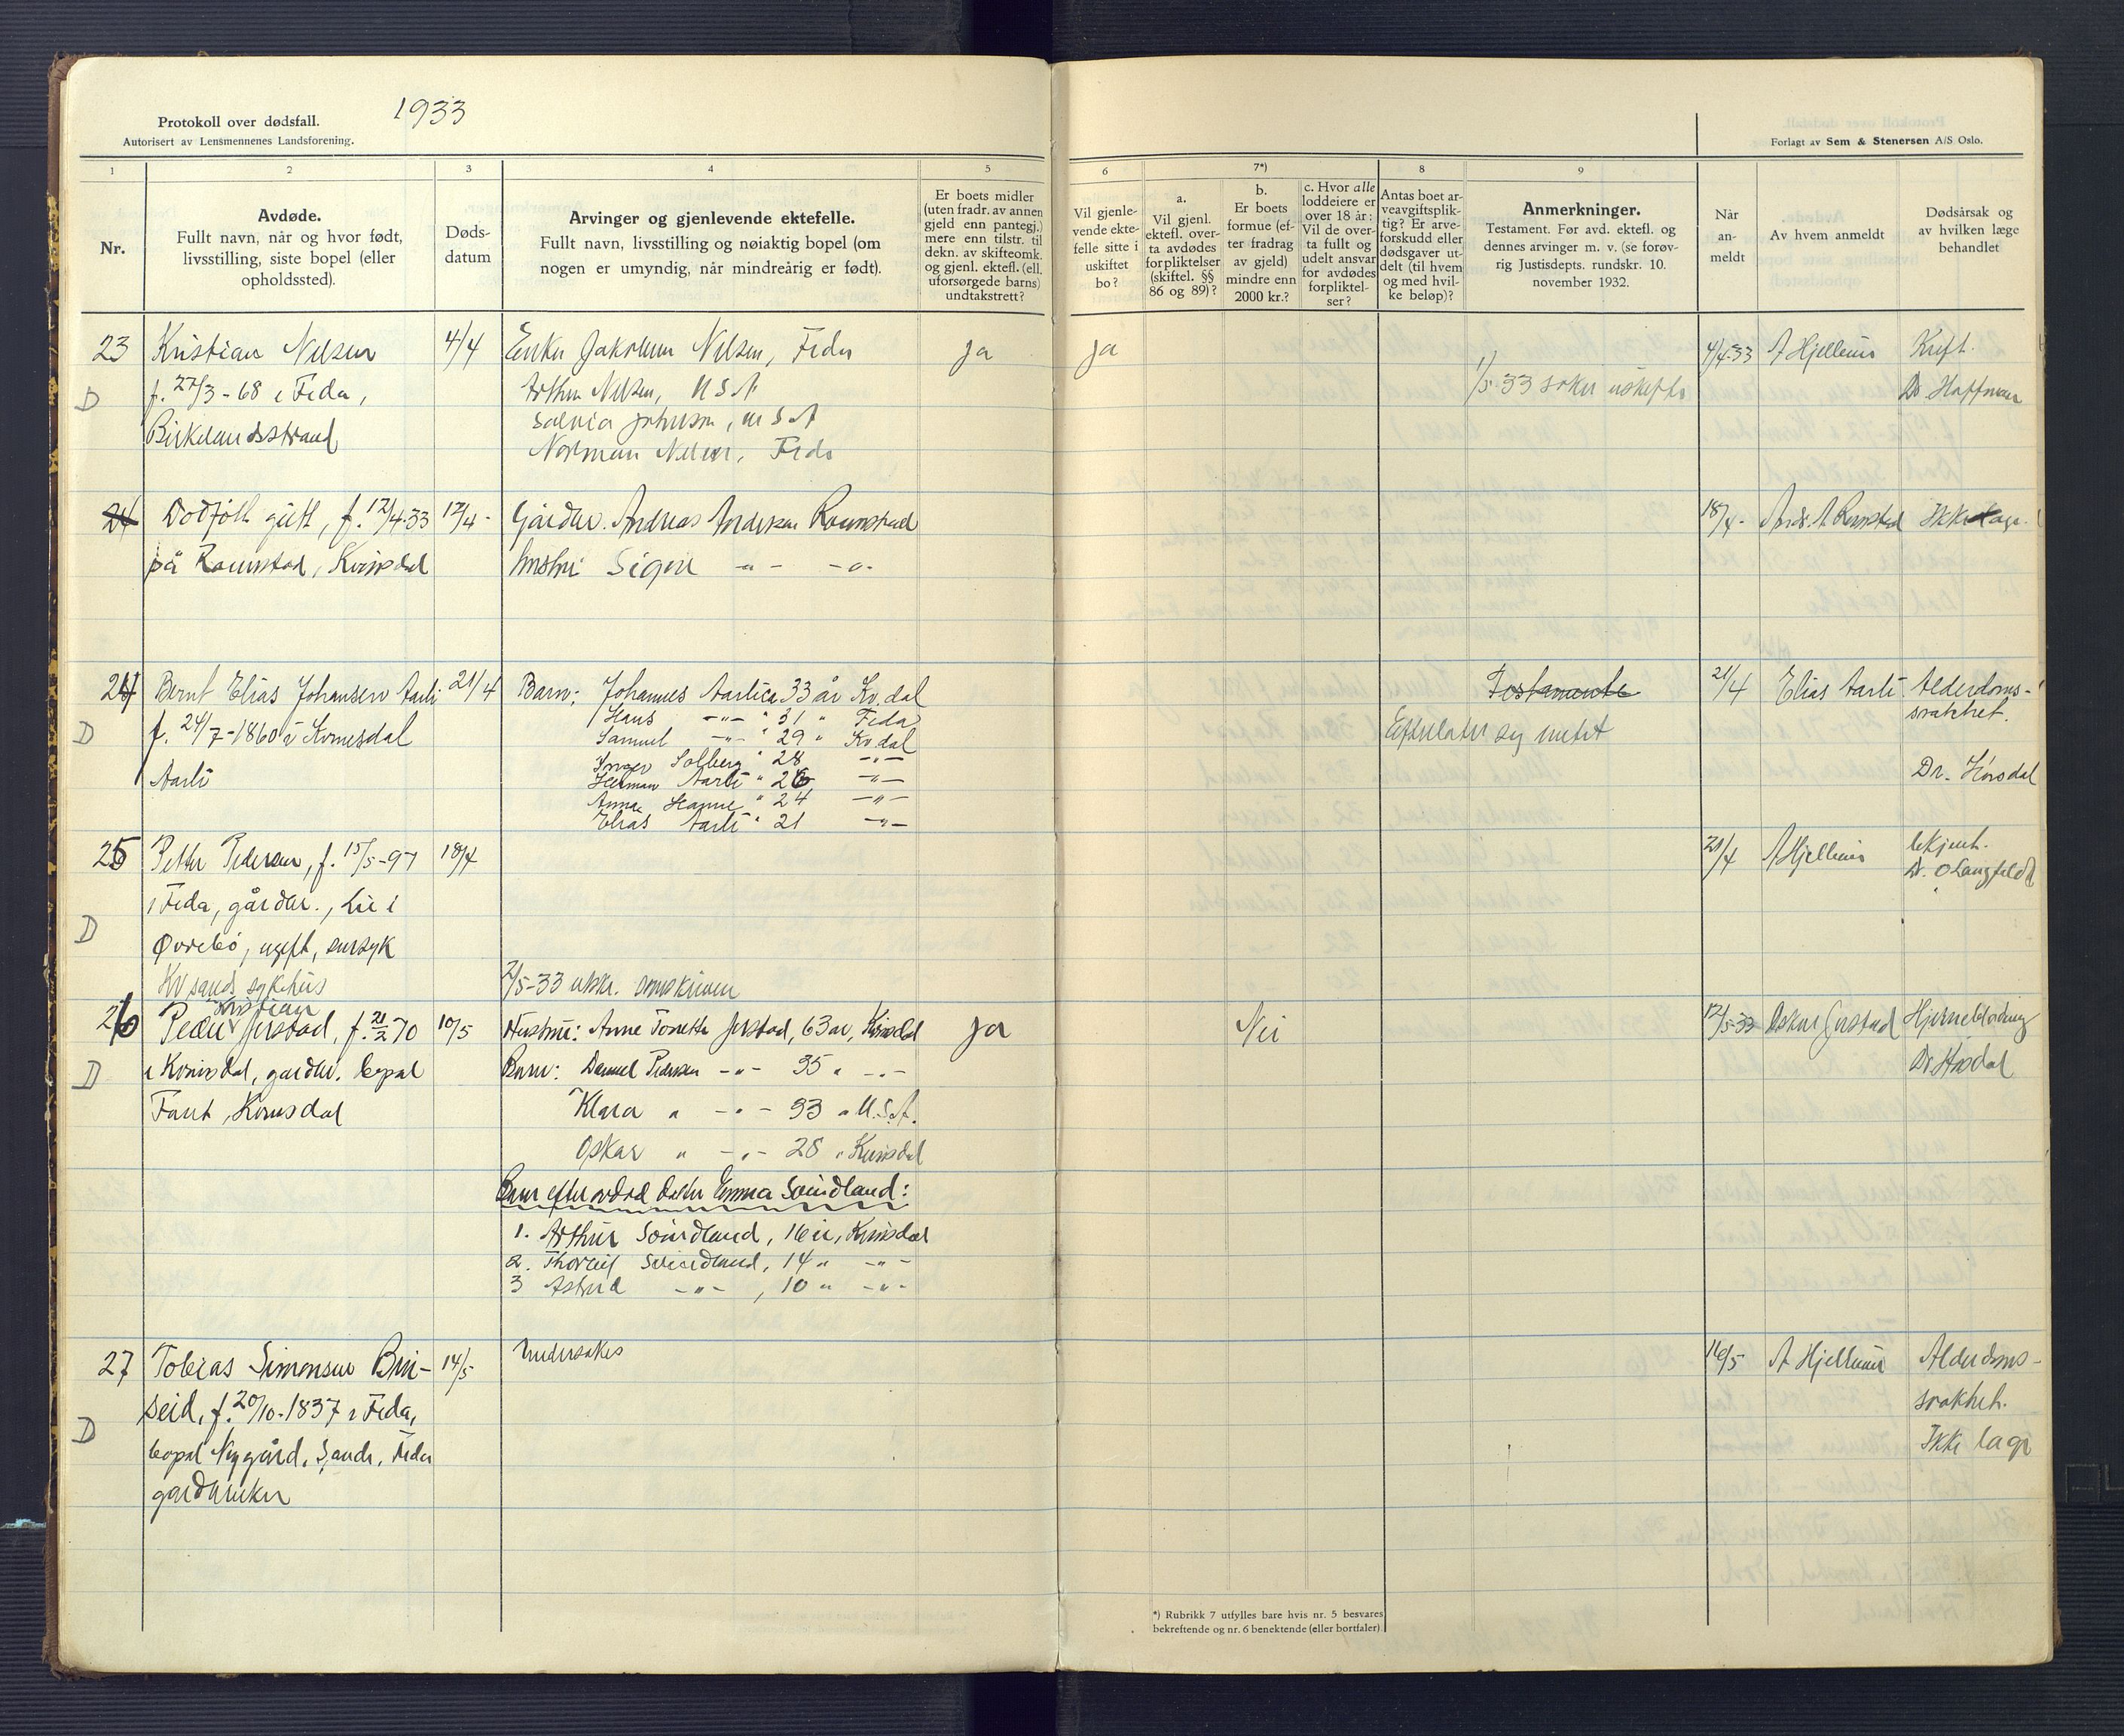 Protokoll over dødsfall.
1933
Autorisert av Lensmennenes Landsforening.
Forlagt av Sem & Stenersen A/S Oslo.
1
2
3
4
5
6
7*)
8
9
Nr.
Avdøde.
Fullt navn, når og hvor født,
livsstilling, siste bopel (eller
opholdssted).
Døds-
datum
Arvinger og gjenlevende ektefelle.
Fullt navn, livsstilling og nøiaktig bopel (om
nogen er umyndig, når mindreårig er født).
Er boets midler
(uten fradr. av annen
gjeld enn pantegj.)
mere enn tilstr. til
dekn. av skifteomk.
og gjenl. ektefl. (ell.
uforsørgede barns)
undtakstrett?
Vil gjenle-
vende ekte-
felle sitte i
uskiftet
bo?
a.
Vil gjenl.
ektefl. over-
ta avdødes
forpliktelser
(skiftel. §§
86 og 89)?
b.
Er boets
formue (ef-
ter fradrag
av gjeld)
mindre enn
2000 kr.?
c. Hvor alle
loddeiere er
over 18 år:
Vil de over-
ta fullt og
udelt ansvar
for avdødes
forpliktel-
ser?
Antas boet ar-
veavgiftsplik-
tig? Er arve-
forskudd eller
dødsgaver ut-
delt (til hvem
og med hvil-
ke beløp)?
Anmerkninger.
Testament. Før avd. ektefl. og
dennes arvinger m. v. (se forøv-
rig Justisdepts. rundskr. 10.
november 1932.
Når
an-
meldt
Av hvem anmeldt
Dødsårsak og
av hvilken læge
behandlet
23
Kristian Nilsen
4/4
Enke Jakobine Nilsen, Feda
ja
ja
4/4-33
A Hjellnes
Kreft.
D
f. 27/3-68 i Feda,
Arthur Nilsen, U S A
1/5-33 søker uskifte
Dr. Hoffman
Birkelandsstrand
Johnson, U S A
Norman Nilsen, Feda
24
Dødfødt gutt, f. 12/4-33
12/4-
Gårdbr. Andreas Andersen Røunstad
18/4-
Andr. A Røunstad
Ikke læge.
på Røunstad, Kvinesdal
hustru Signe -"- -"-
24
Bernt Elias Johansen Aarli
21/4
Barn: Johannes Aarli ca 33 år Kv.dal
Testamente
21/4
Elias Aarli
Alderdoms-
svakhet.
D
f. 24/7-1860 i Kvinesdal
Hans -"- " 31 " Feda
Samuel -"- " 29 " Kv.dal
Efterlater sig intet
Inger Solberg " 28 -"-
Aarli
Herman Aarli " 26 -"-
Dr. Hørsdal
Anna Hanne " 24 -"-
Elias Aarli " 21 -"-
25
Petter Pedersen, f. 15/5-97
18/4
21/4
A Hjellnes
Ukjent.
Dr. O Langfeldt
D
i Feda, gårdbr., Lie i
Øvrebø, ugift, sinsyk
Kr.sands sykehus
2/5-33 utskr.
26
Peder Kristian Jerstad, f. 21/2 70
10/5
Hustru: Anne Tonette Jerstad, 63 år, Kvinesdal
ja
Nei
12/5-33
Oskar Jerstad
Hjerneblødning
D
i Kvinesdal, gårdbr. bopel
Barn: Daniel Pedersen -"- 35 " -"-
Dr. Hørsdal
Faret, Kvinesdal
Klara " -"- 33 " U.S.A.
Oskar " -"- 28 " Kvinesdal
Barn efter avdød datter Emma Svindland:
1. Arthur Svindland, 16 år, Kvinesdal
2. Thorleif Svindland, 14 " -"-
3 Astrid -"-, 10 " -"-
27
Tobias Simonsen Brin-
14/5
Undersøkes
16/5
A Hjellnes
Alderdoms-
seid, f. 20/10-1837 i Feda,
svakhet.
D
bopel Nygård, Sande, Feda
Ikke læge
gårdbruker
*) Rubrikk 7 utfylles bare hvis nr. 5 besvares
bekreftende og nr. 6 benektende (eller bortfaler).